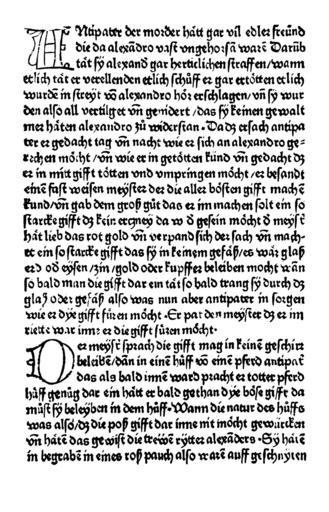 ANtipater der morder hätt gar vil edler freünd
die da alexādro vast vngehorsā warē Darūb
tät sy alexand gar hertiklichen straffen/wann
etlich tät er verellenden etlich schůff er gar ertötten etlich
wurdē in streyt vō alexandro hör erschlagen/vn̄ sy wur
den also all vertilget vn̄ gemidert/das sy keinen gewalt
mer häten alexandro zů widerstan · Da dz ersach antipa
ter er gedacht tag vn̄ nacht wie er sich an alexandro ge-
rechen möcht/vn̄ wie er in getötten kund vn̄ gedacht dz
er in mitt gifft tötten vnd vmpringen möcht/er besandt
einē fast weisen meyster der die aller bösten gifft machē
kund/vn̄ gab dem groß gůt das er im machen solt ein so
starcke gifft dz kein erczney da wͦ d gesein möcht ð meyst̄
hät lieb das rot gold vn̄ verpand sich der sach vn̄ mach-
et ein so starcke gifft das sy in keinem gefäß/es wär glaß
erd oð eysen/zin/gold oder kupffer beleiben mocht wan̄
so bald man die gifft dar ein tät so bald trang sy durch dz
glaß oder gefäß also was nun aber antipater in sorgen
wie er dye gifft füren möcht · Er pat den meyster dz er im
riette war inn er die gifft füren möcht ·
DEr meyst̄ sprach die gifft mag in keinē geschirr
beleibē/dan̄ in einē hůff vō einē pferd antipat̄
das als bald innē ward pracht er totter pferd
hůff genůg dar ein hätt er bald gethan dye böse gifft da
můst sy beleyben in dem hůff · Wann die natur des hůffs
was also/dz die poß gifft dar inne nit möcht gewürcken
vn̄ hätē das gewist die trewē rytter alexāders · Sy hätē
in begrabē in eines roß pauch also warē auff geschnyten